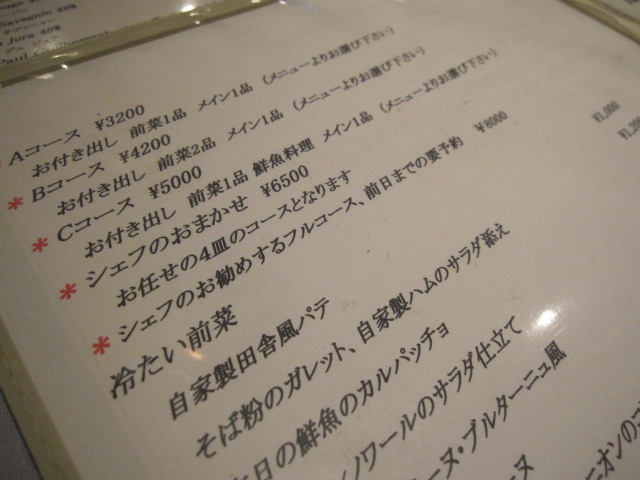 Savagnin
Jura
* Aコース ¥3200
お付き出し 前菜1品 メイン1品 (メニューよりお選び下さい)
* Bコース ¥4200
お付き出し 前菜2品 メイン1品 (メニューよりお選び下さい)
* Cコース ¥5000
お付き出し 前菜1品 鮮魚料理 メイン1品 (メニューよりお選び下さい)
* シェフのおまかせ ¥6500
お任せの4皿のコースとなります
* シェフのお勧めするフルコース、前日までの要予約 ¥8000
冷たい前菜
自家製田舎風パテ ¥1,000
そば粉のガレット、自家製ハムのサラダ添え
本日の鮮魚のカルパッチョ
ノワールのサラダ仕立て
ーヌ・ブルターニュ風